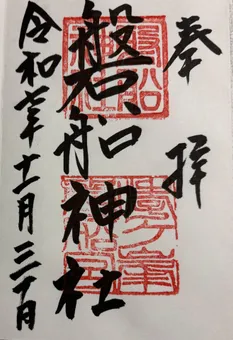 奉拝
磐船神社
令和六年十一月三十日